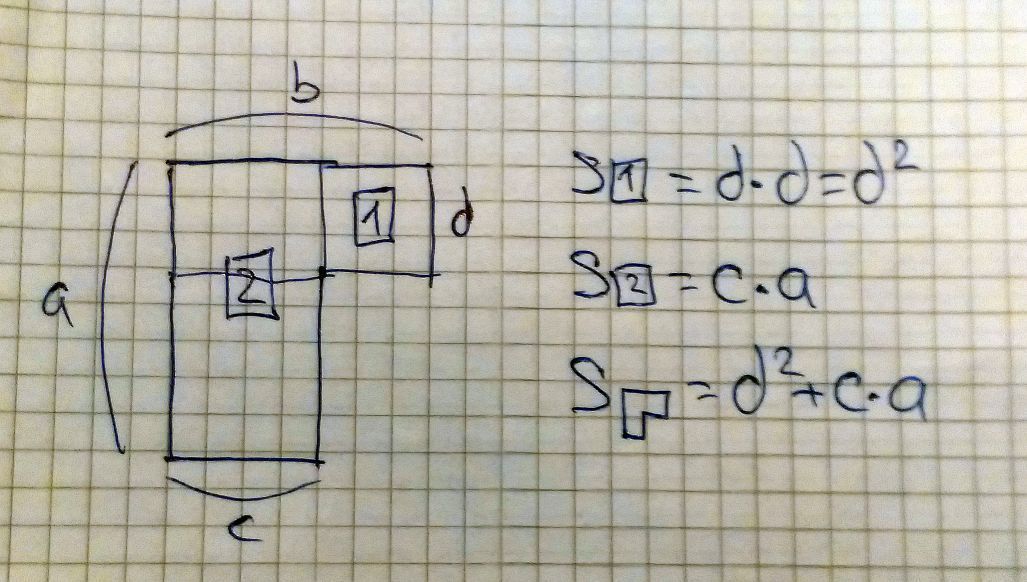 b
a
1
d
2
c
S1 = d·d = d²
S2 = c·a
S = d² + c·a